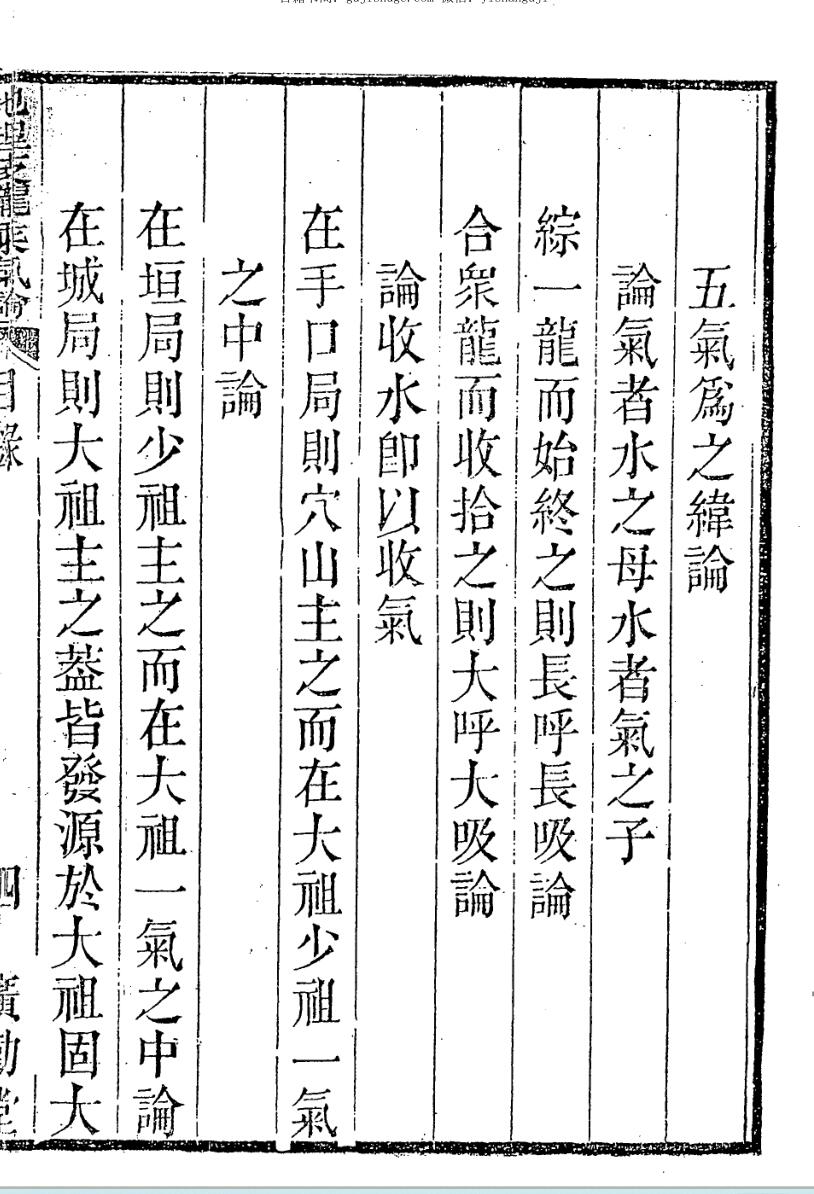 五氣爲之緯論
論氣者水之母水者氣之子
綜一龍而始終之則長呼長吸論
合衆龍而收拾之則大呼大吸論
論收水卽以收氣
在手口局則穴山主之而在大祖少祖一氣
之中論
在垣局則少祖主之而在大祖一氣之中論
在城局則大祖主之葢皆發源於大祖固大
地理支龍乘氣論 目錄 四 廣勤堂